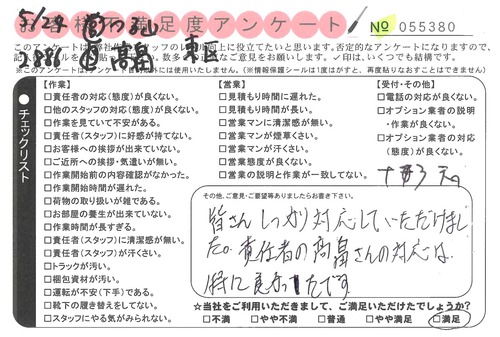 5/29
お客様満足度アンケート
№ 055380
高畠
東区
このアンケートは
に役立てたいと思います。否定的なアンケートになりますので、
数多くの正直なご意見をお願いします。✓印は、いくつでも結構です。
(※情報保護シールは1度はがすと、再度貼りなおすことはできません)
チェックリスト
【作業】
□責任者の対応(態度)が良くない。
□他のスタッフの対応(態度)が良くない。
□作業を見ていて不安がある。
□責任者(スタッフ)に好感が持てない。
□お客様への挨拶が出来ていない。
□ご近所への挨拶・気遣いが無い。
□作業開始前の内容確認がなかった。
□作業開始時間が遅れた。
□荷物の取り扱いが雑である。
□お部屋の養生が出来ていない。
□作業時間が長すぎる。
□責任者(スタッフ)に清潔感が無い。
□責任者(スタッフ)が汗くさい。
□トラックが汚い。
□梱包資材が汚い。
□運転が不安(下手)である。
□靴下の履き替えをしてない。
□スタッフにやる気がみられない。
【営業】
□見積もり時間に遅れた。
□見積もり時間が長い。
□営業マンに清潔感が無い。
□営業マンが煙草くさい。
□営業マンが汗くさい。
□営業態度が良くない。
□営業の説明と作業が一致してない。
【受付・その他】
□電話の対応が良くない。
□オプション業者の説明
・作業が良くない。
□オプション業者の対応
(態度)が良くない。
その他、ご意見・ご要望等ありましたらお書き下さい。
皆さんしっかり対応していただけまし
た。責任者の高畠さんの対応は、
特に良かったです。
☆当社をご利用いただきまして、ご満足いただけたでしょうか?
□不満 □やや不満 □普通 □やや満足 □満足